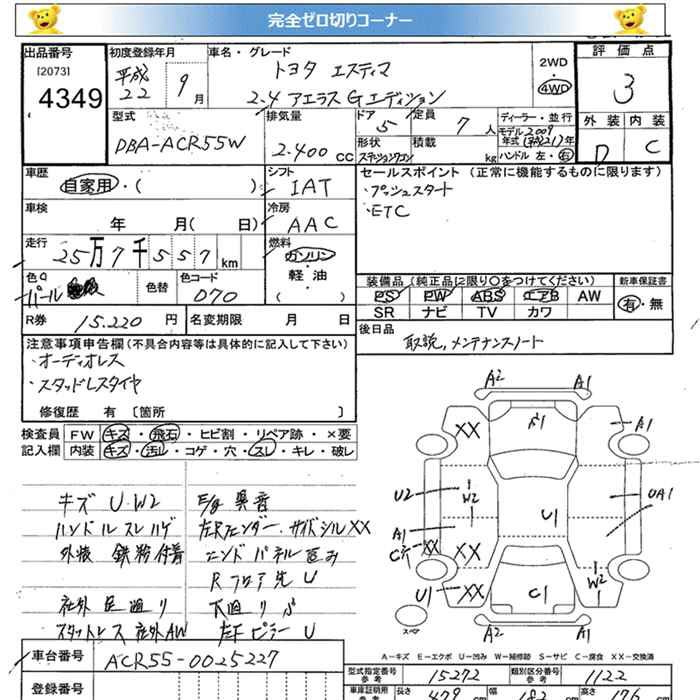 完全ゼロ切りコーナー
出品番号 初度登録年月 車名・グレード 評価点
[2073] 平成 トヨタ エスティマ 2WD
4349 22 9月 2.4 アエラス Gエディション 4WD 3
型式 排気量 ドア 定員 ディーラー・並行 外装 内装
DBA-ACR55W 2.400 CC 5 7人 モデル 2009 年式(平成21)年 D C
形状 積載 kg ハンドル 左・右
ステーションワゴン
車歴 シフト セールスポイント (正常に機能するものに限ります)
自家用・( ) IAT ・プッシュスタート
車検 冷房 ・ETC
年 月( 日) AAC
走行 燃料
25万7千557km ガソリン
色 色替 色コード 軽・油 装備品(純正品に限り○をつけてください) 新車保証書
パール 070 ( ) PS PW ABS エアB AW 有・無
SR ナビ TV カワ
R券 15.220円 名変期限 月 日 後日品
取説,メンテナンスノート
注意事項申告欄(不具合内容等は具体的に記入して下さい)
・オーディオレス
・スタッドレスタイヤ
修復歴 有 〔箇所 〕
検査員 FW キズ・飛石・ヒビ割・リペア跡・×要
記入欄 内装 キズ・汚れ・コゲ・穴・スレ・キレ・破レ
キズ U.W2 E/g 異音
ハンドルスレハゲ 左Rフェンダー.サイドシルXX
外装 鉄粉付着 エンドパネル歪み
Rフロア先 U
社外 足廻り 下廻り
スタットレス 社外AW 左Fピラー U
A2 A1
XX A1 A1
U2 W2 U1 UA1
A1
XX XX
U1 XX C1 W2
スペア A2 A1
A-キズ E-エクボ U-凹み W-補修跡 S-サビ C-腐食 XX-交換済
車台番号 ACR55-0025227
登録番号
型式指定番号 参考 15272 類別区分番号 参考 1122
車庫証明用 参考 長さ 479 cm 幅 高さ 176 cm